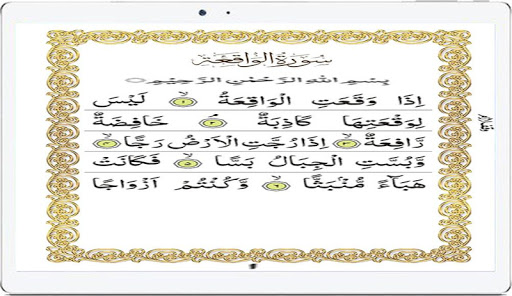 سُورَةُ الْوَاقِعَةِ
بِسْمِ اللّٰهِ الرَّحْمٰنِ الرَّحِيْمِ
اِذَا وَقَعَتِ الْوَاقِعَةُ ۙ﴿۱﴾ لَيْسَ
لِوَقْعَتِهَا كَاذِبَةٌ ۘ﴿۲﴾ خَافِضَةٌ
رَّافِعَةٌ ۙ﴿۳﴾ اِذَا رُجَّتِ الْاَرْضُ رَجًّا ۙ﴿۴﴾
وَّبُسَّتِ الْجِبَالُ بَسًّا ۙ﴿۵﴾ فَكَانَتْ
هَبَآءً مُّنْۢبَثًّا ۙ﴿۶﴾ وَّكُنْتُمْ اَزْوَاجًا